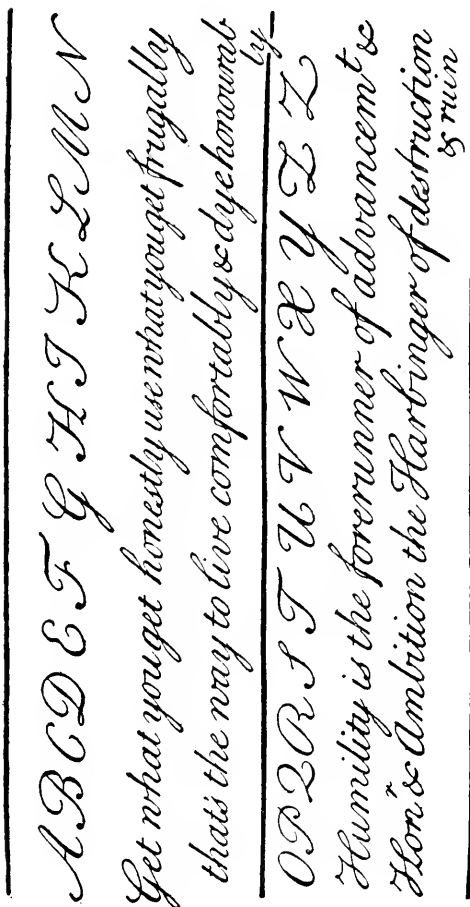 A B C D E F G H I K L M N
Get what you get honestly use what you get frugally
that's the way to live comfortably & dye honourab
ly
O P Q R S T U V W X Y Z Z
Humility is the forerunner of advancemt &
Honr & Ambition the Harbinger of destruction
& ruin